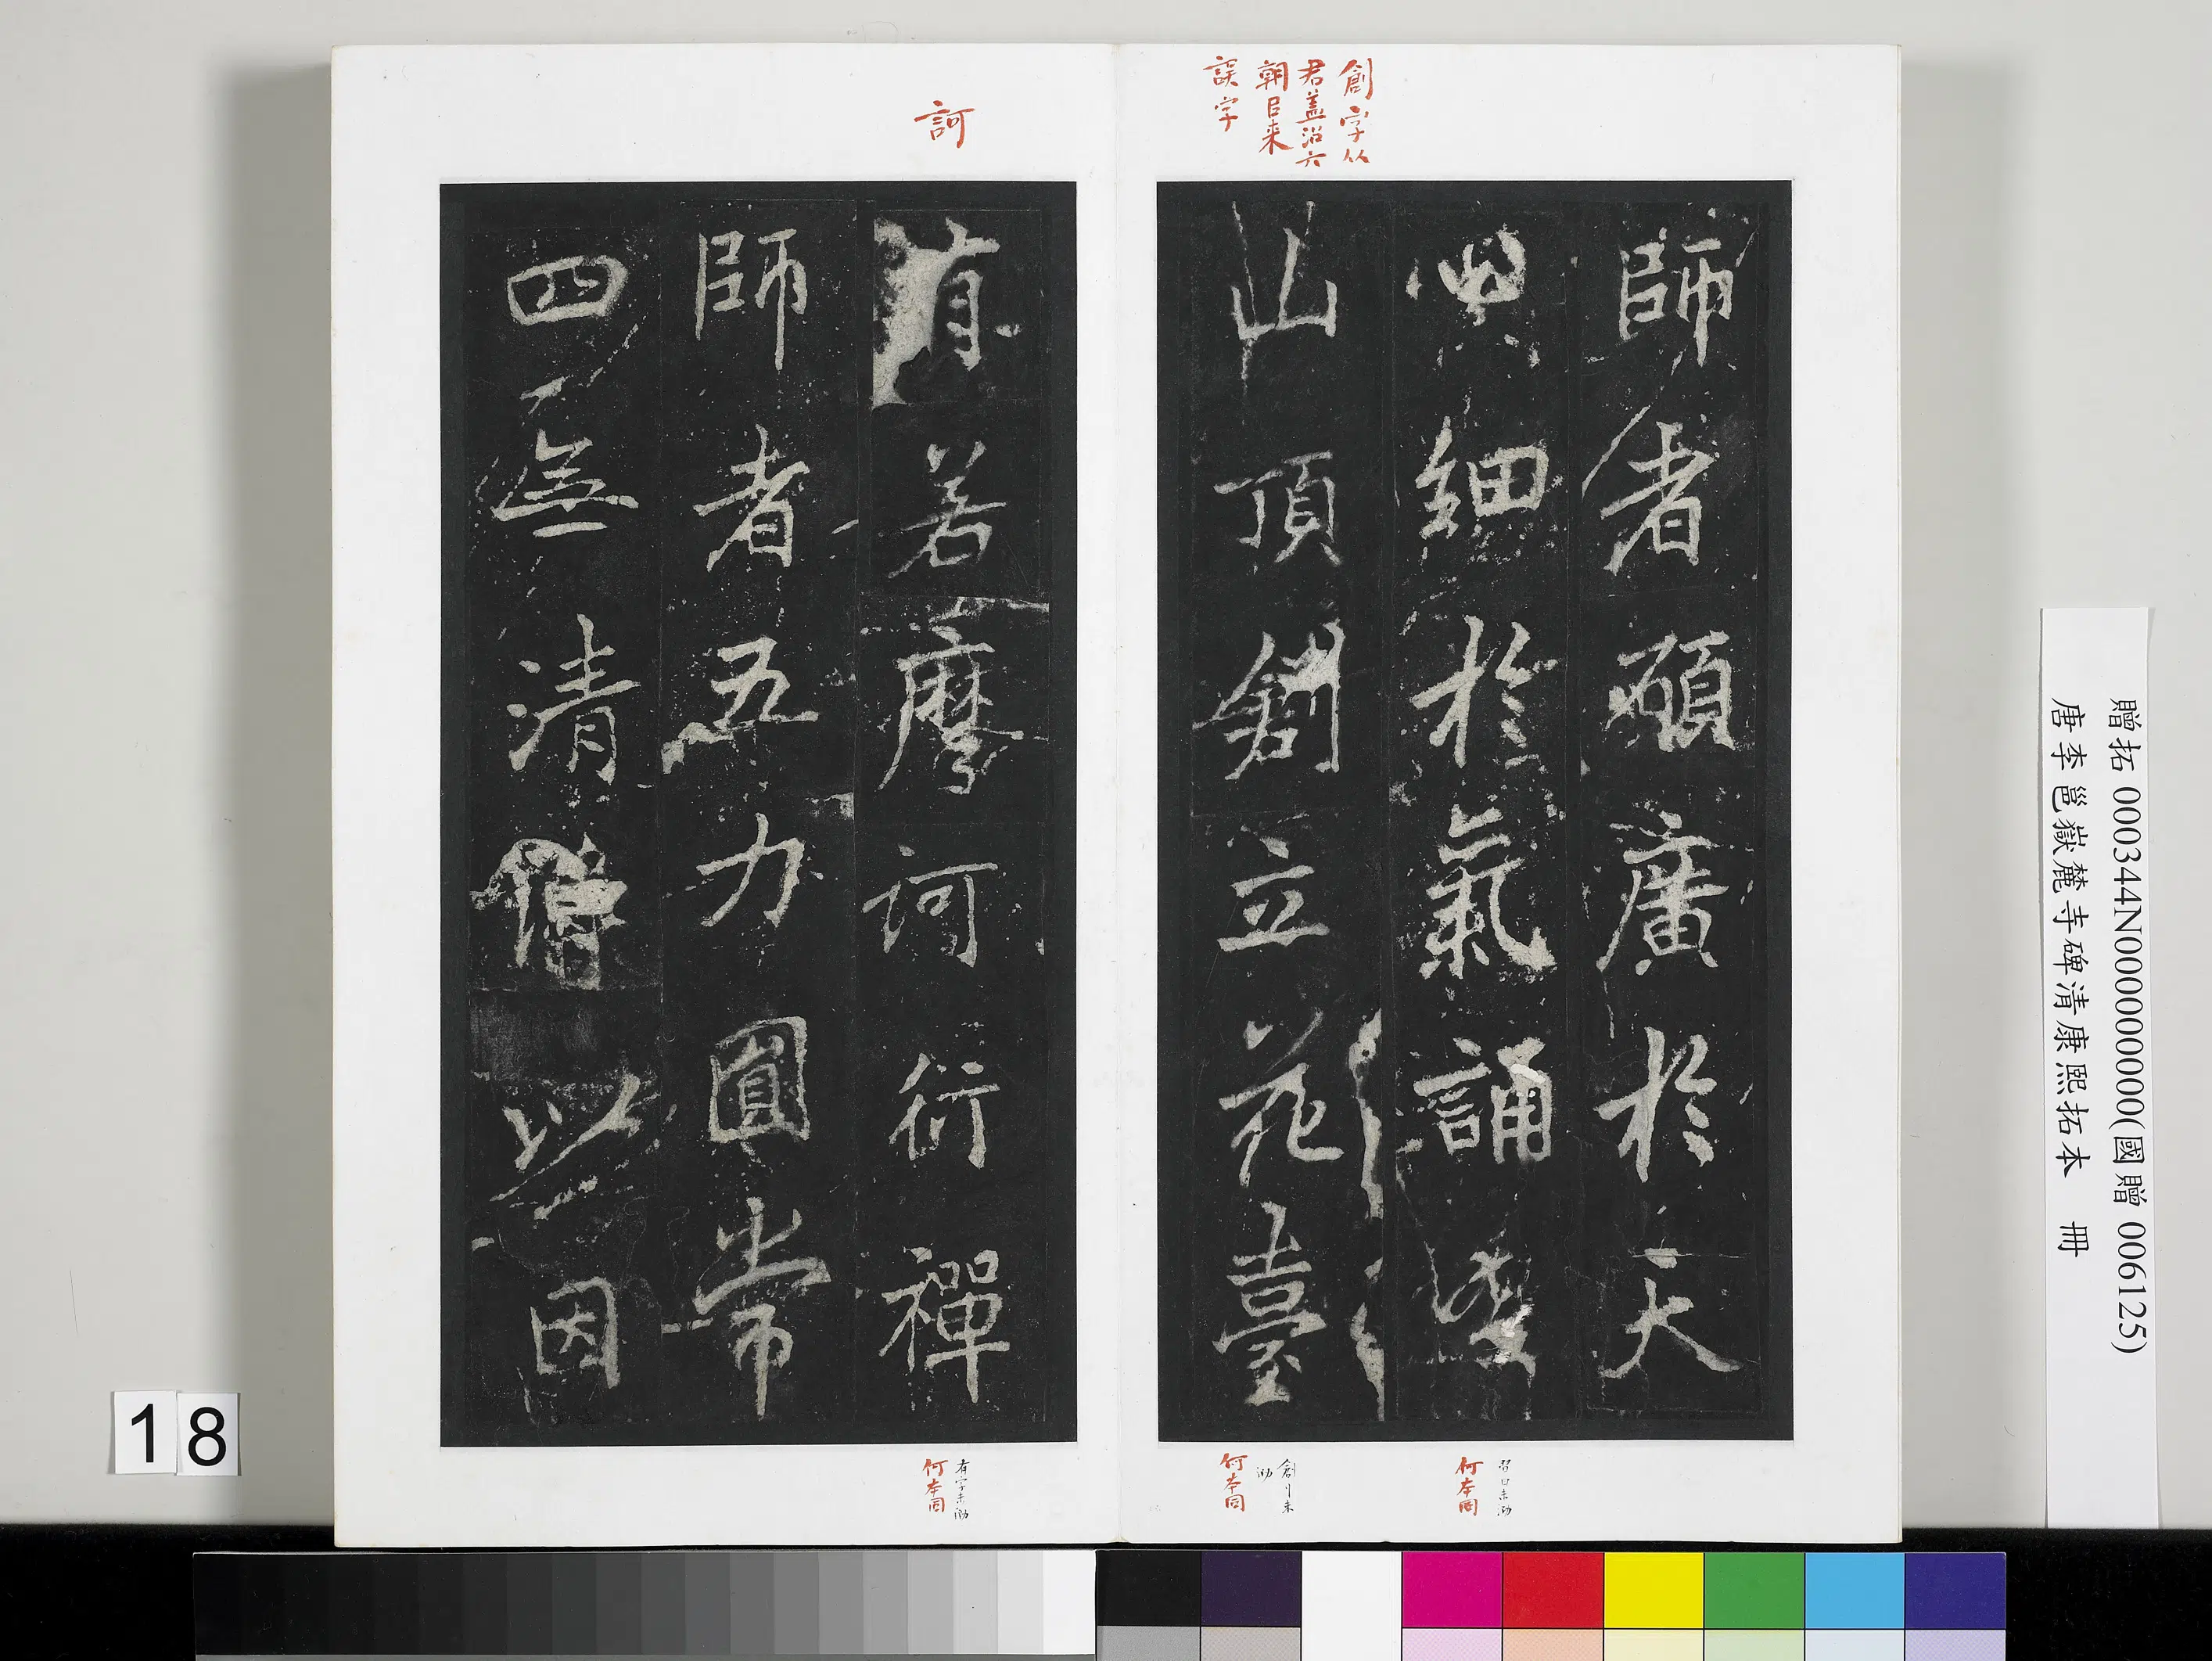 創字从
君蓋沿六
朝已来
誤字
師者碩廣於天
細於氣誦習
山頂創立花臺
習日未泐
何本同
創刂未
泐
何本同
訶
有若摩訶衍禪
師者五力圓常
四無清以因
有字未泐
何本同
贈拓 000344N000000000(國贈 006125)
唐李邕嶽麓寺碑清康熙拓本 冊
18